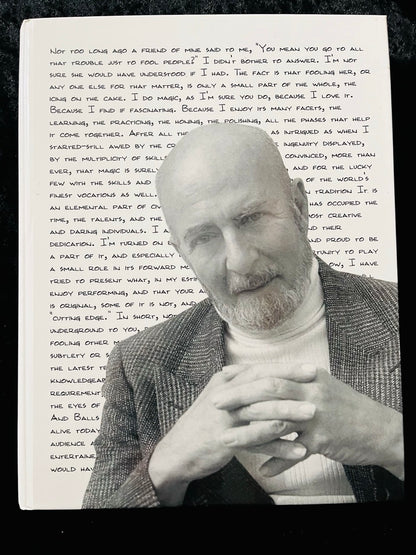 Not too long ago a friend of mine said to me, "You mean you go to all
that trouble just to fool people?" I didn't bother to answer. I'm not
sure she would have understood if I had. The fact is that fooling her, or
any one else for that matter, is only a small part of the whole, the
icing on the cake. I do magic, as I'm sure you do, because I love it.
Because I find it fascinating. Because I enjoy its many facets, the
learning, the practicing, the honing, the polishing, all the phases that help
it come together. After all the as intrigued as when I
started-still awed by the cr ingenuity displayed,
by the multiplicity of skills convinced, more than
ever, that magic is surely and for the lucky
few with the skills and of the world's
finest vocations as well. n tradition It is
an elemental part of ov has occupied the
time, the talents, and the most creative
and daring individuals. I a nd their
dedication. I'm turned on b nd proud to be
a part of it, and especially tunity to play
a small role in its forward mo ow, I have
tried to present what, in my est
enjoy performing, and that your a
is original, some of it is not, and
"cutting edge." In short, no
underground to you,
fooling other m
subtlety or s
the latest te
knowledgeab
requirement
the eyes of
And Balls
alive today
audience a
entertaine
would hav